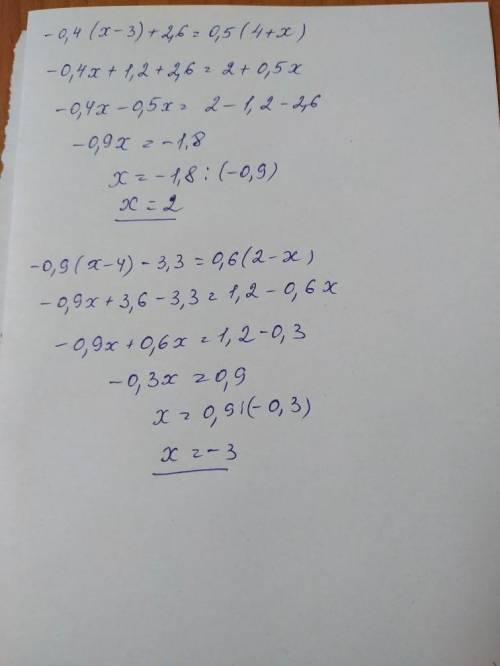 -0,4(x-3)+2,6=0,5(4+x)
-0,4x+1,2+2,6=2+0,5x
-0,4x-0,5x=2-1,2-2,6
-0,9x=-1,8
x=-1,8:(-0,9)
x=2
-0,9(x-4)-3,3=0,6(2-x)
-0,9x+3,6-3,3=1,2-0,6x
-0,9x+0,6x=1,2-0,3
-0,3x=0,9
x=0,9:(-0,3)
x=-3